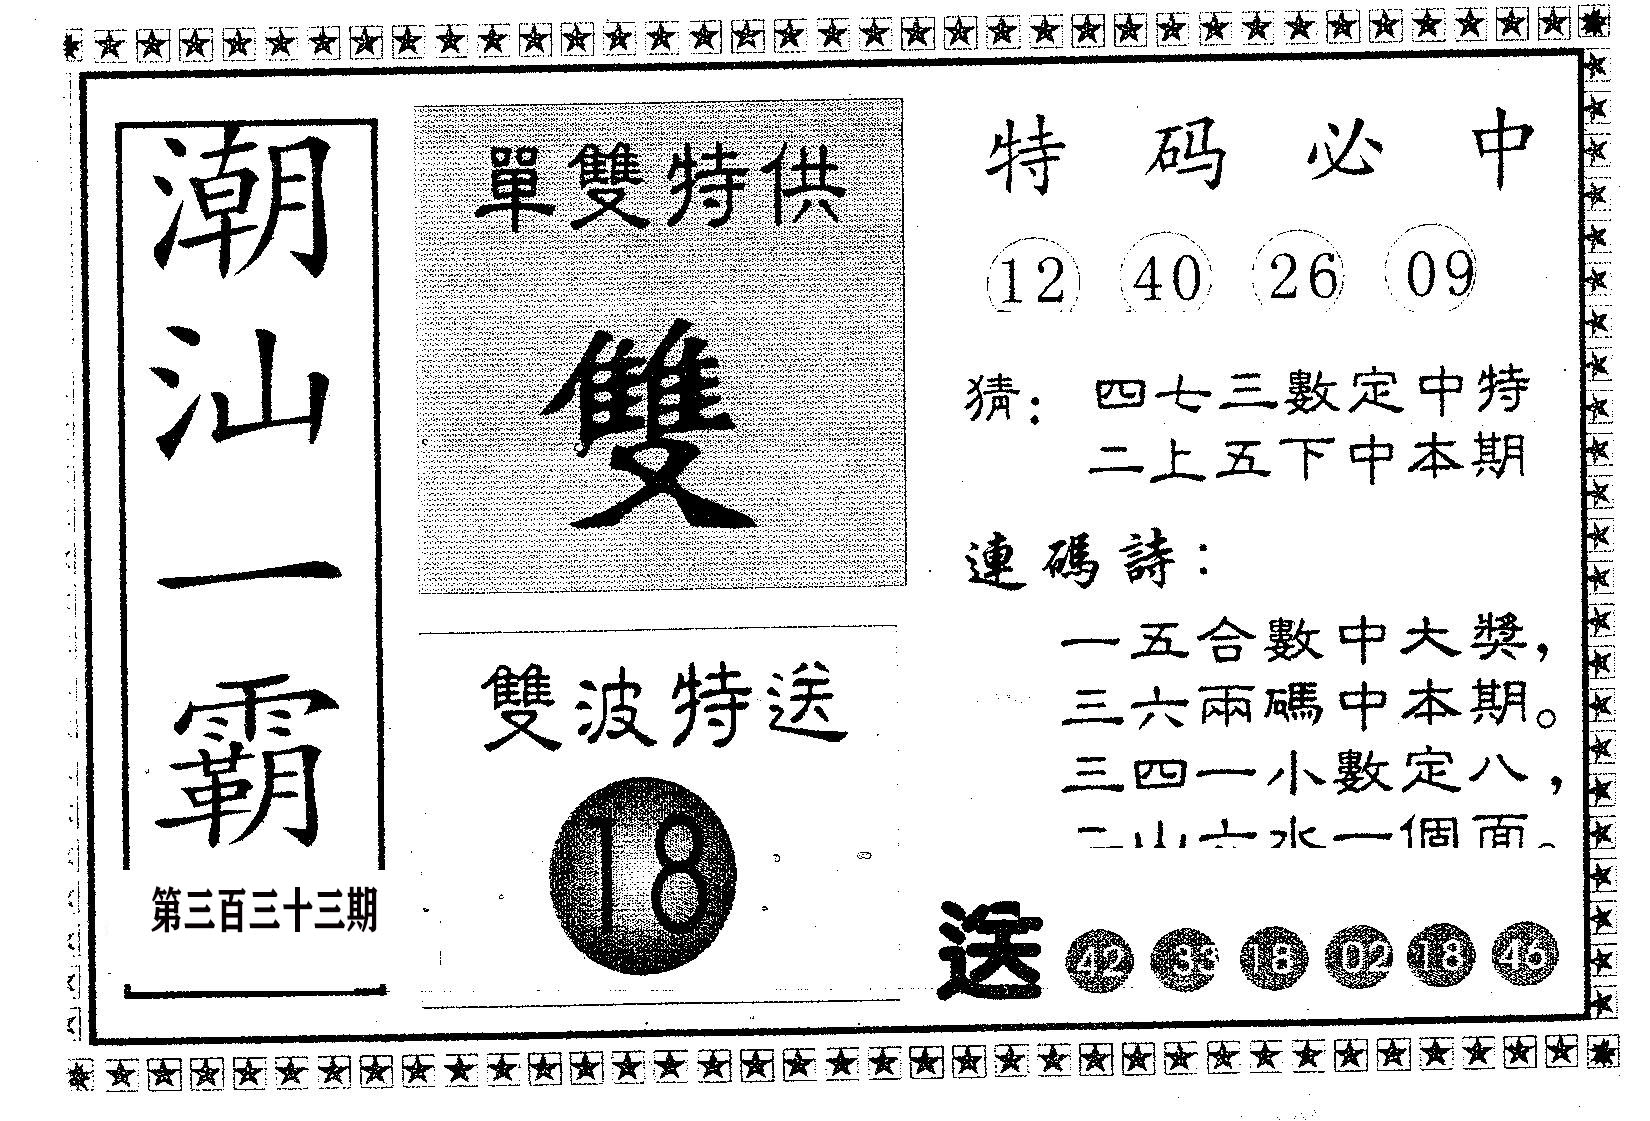 潮汕一霸
第三百三十三期
單雙特供
雙
雙波特送
18
特码必中
12 40 26 09
猜：四七三數定中特
二上五下中本期
連碼詩：
一五合數中大獎，
三六兩碼中本期。
三四一小數定八，
二山六水一個面。
送 42 33 18 02 18 46